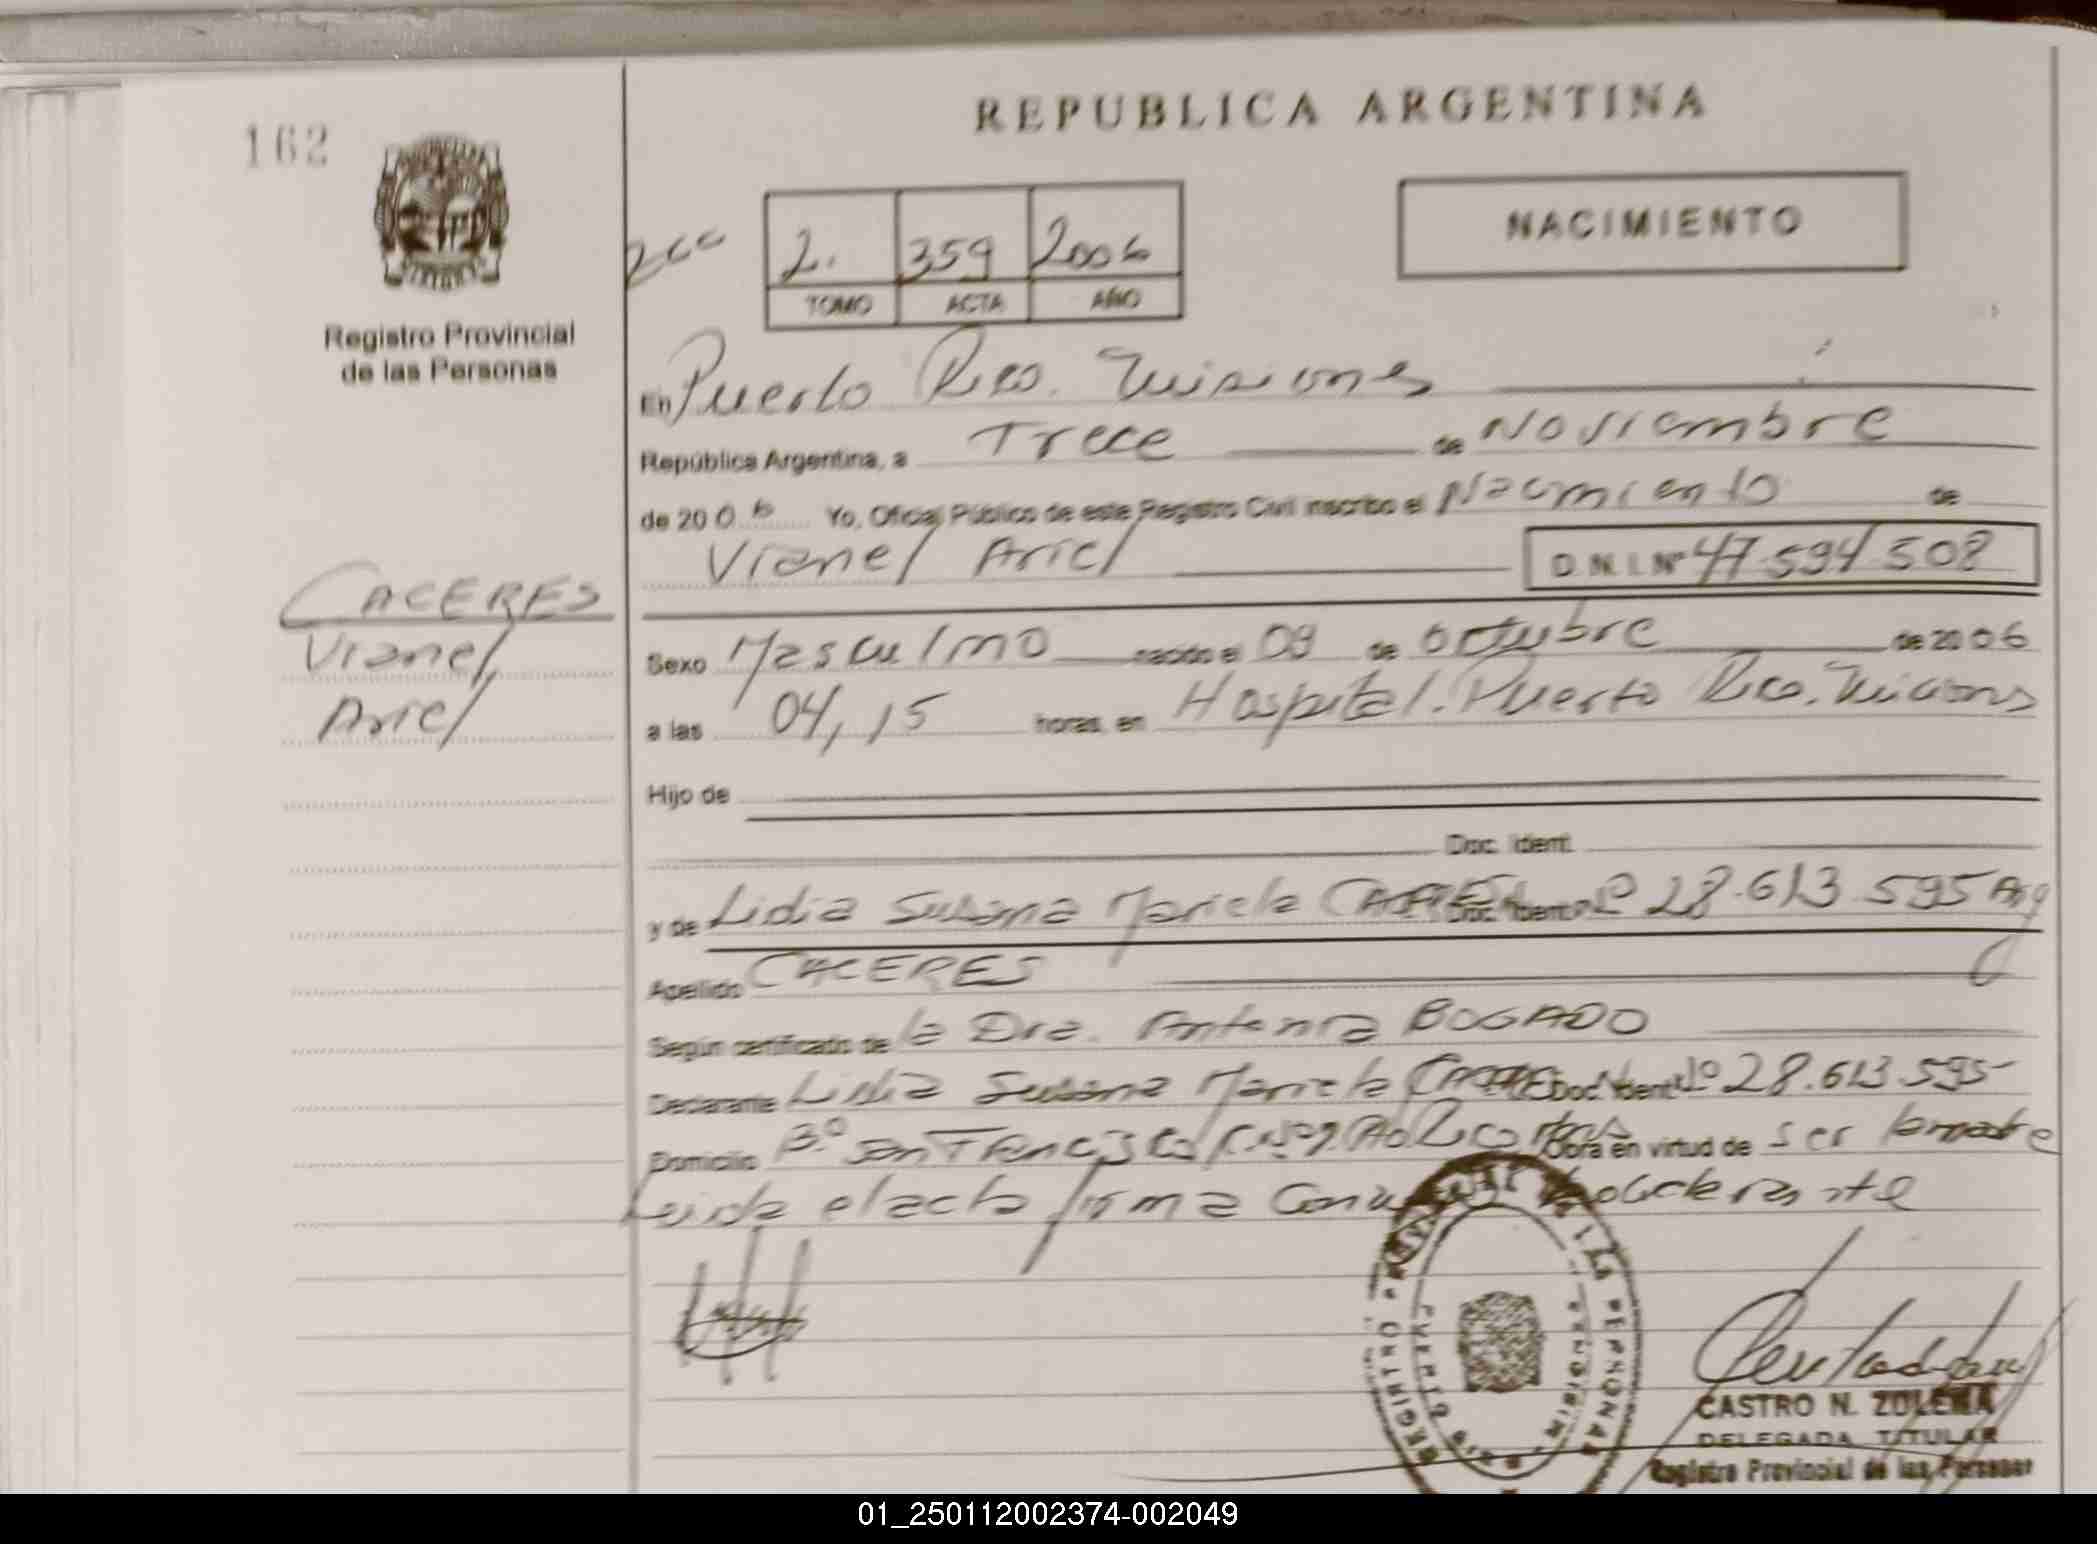 REPUBLICA ARGENTINA
162
NACIMIENTO
2. 359 2006
TOMO ACTA AÑO
Registro Provincial
de las Personas
En Puerto Rico. Misiones
República Argentina, a Trece de Noviembre
de 2006 Yo, Oficial Público de este Registro Civil inscribo el Nacimiento de
Vianel Ariel D.N.I.Nº 47.594.508
CACERES
Vianel
Ariel
Sexo Masculino nacido el 09 de Octubre de 2006
a las 04,15 horas, en Hospital. Puerto Rico. Misiones
Hijo de
Doc. Ident.
y de Lidia Susana Mariela CACERES Doc. Ident. Nº 28.613.595 Arg
Apellido CACERES
Según certificado de la Dra. Antonia BOGADO
Declarante Lidia Susana Mariela Doc. Ident. Nº 28.613.595
Domicilio Bº San Francisco Rico Obra en virtud de ser la madre
Leida el acta firma
REGISTRO PROVINCIAL DE LAS PERSONAS
PUERTO RICO
CASTRO N. ZULEMA
DELEGADA TITULAR
Registro Provincial de las Personas
01_250112002374-002049